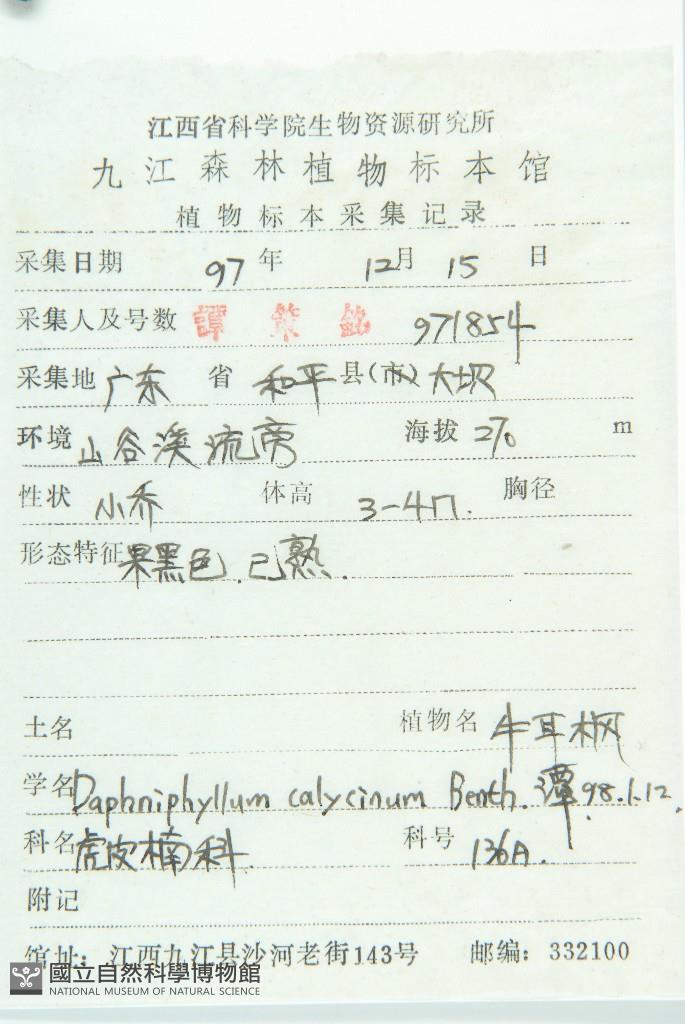 江西省科学院生物资源研究所
九江森林植物标本馆
植物标本采集记录
采集日期 97 年 12月 15 日
采集人及号数 譚策銘 971854
采集地 广东 省 和平 县(市) 大坝
环境 山谷溪流旁 海拔 270 m
性状 小乔 体高 3-4m. 胸径
形态特征 果黑色.已熟.
土名 植物名 牛耳枫
学名 Daphniphyllum calycinum Benth. 潭 98.1.12.
科名 虎皮楠科 科号 136A.
附记
馆址：江西九江县沙河老街143号 邮编：332100
國立自然科學博物館
NATIONAL MUSEUM OF NATURAL SCIENCE